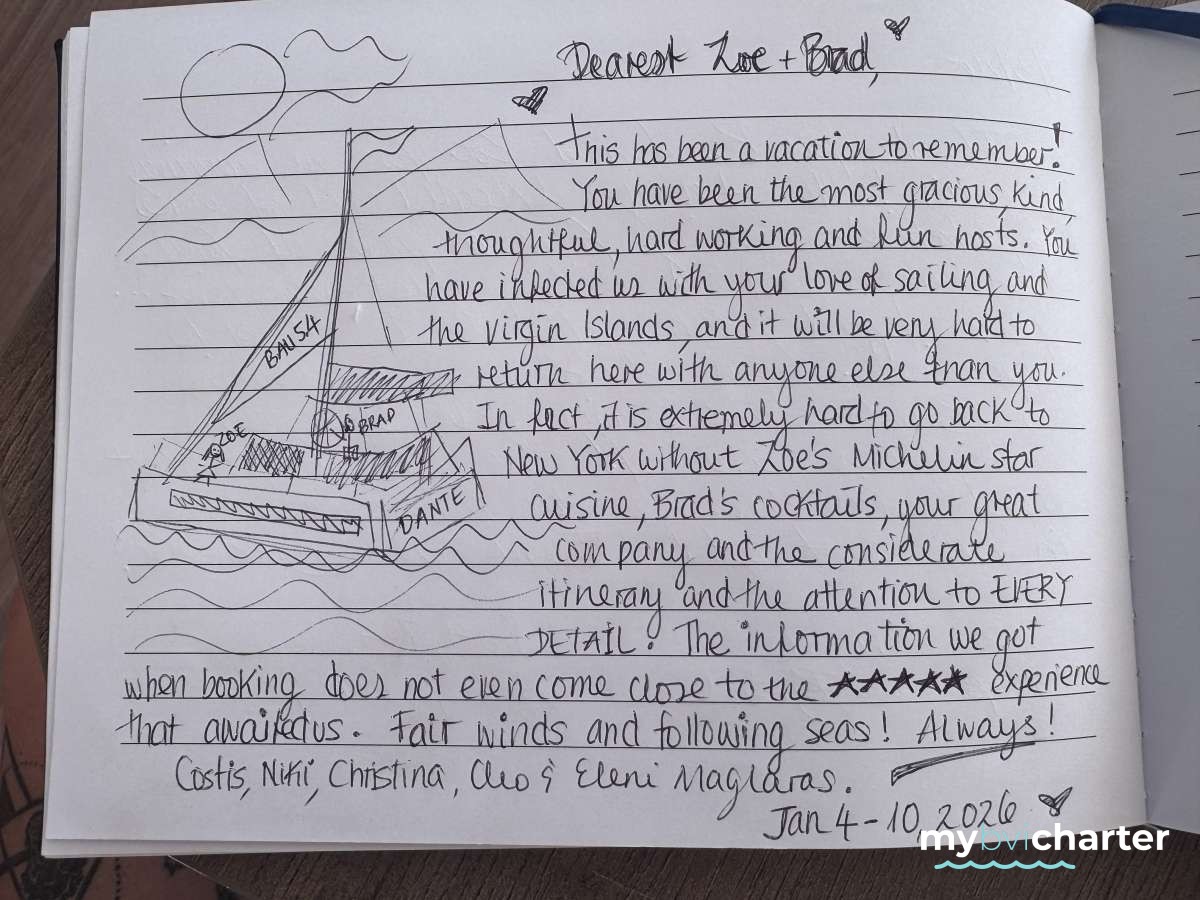 Dearest Zoe + Brad,
This has been a vacation to remember!
You have been the most gracious, kind,
thoughtful, hard working and fun hosts. You
have infected us with your love of sailing and
the Virgin Islands, and it will be very hard to
return here with anyone else than you.
In fact, it is extremely hard to go back to
New York without Zoe's Michelin star
cuisine, Brad's cocktails, your great
company and the considerate
itinerary and the attention to EVERY
DETAIL! The information we got
when booking does not even come close to the ★★★★★ experience
that awaited us. Fair winds and following seas! Always!
Costis, Niki, Christina, Cleo & Eleni Maglaras.
Jan 4-10, 2026
BALI 54
ZOE
BRAD
DANTE
mybvicharter